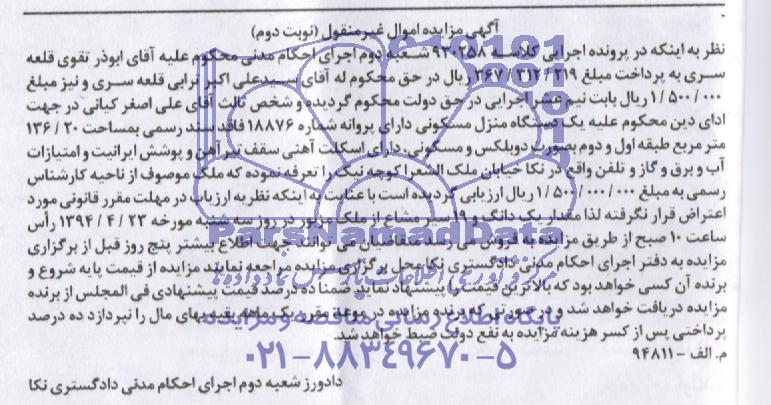 آگهی مزایده اموال غیرمنقول (نوبت دوم)
نظر به اینکه در پرونده اجرایی کلاسه ۹۲۰۲۵۸ شعبه دوم اجرای احکام مدنی محکوم علیه آقای ابوذر تقوی قلعه
سری به پرداخت مبلغ ۳۶۷/۳۱۲/۲۱۹ ریال در حق محکوم له آقای سیدعلی اکبر ترابی قلعه سری و نیز مبلغ
۱/۵۰۰/۰۰۰ ریال بابت نیم عشر اجرایی در حق دولت محکوم گردیده و شخص ثالث آقای علی اصغر کیانی در جهت
ادای دین محکوم علیه یک دستگاه منزل مسکونی دارای پروانه شماره ۱۸۸۷۶ فاقد سند رسمی بمساحت ۱۳۶/۲۰
متر مربع طبقه اول و دوم بصورت دوبلکس و مسکونی، دارای اسکلت آهنی سقف تیرآهن و پوشش ایرانیت و امتیازات
آب و برق و گاز و تلفن واقع در نکا خیابان ملک الشعرا کوچه نیک را تعرفه نموده که ملک موصوف از ناحیه کارشناس
رسمی به مبلغ ۱/۵۰۰/۰۰۰/۰۰۰ ریال ارزیابی گردیده است با عنایت به اینکه نظریه ارزیاب در مهلت مقرر قانونی مورد
اعتراض قرار نگرفته لذا مقدار یک دانگ و ۱۹ سیر مشاع از ملک مزبور در روز سه شنبه مورخه ۱۳۹۴/۴/۲۳ رأس
ساعت ۱۰ صبح از طریق مزایده به فروش می رسد متقاضیان می توانند جهت اطلاع بیشتر پنج روز قبل از برگزاری
مزایده به دفتر اجرای احکام مدنی دادگستری نکا محل برگزاری مزایده مراجعه نمایند مزایده از قیمت پایه شروع و
برنده آن کسی خواهد بود که بالاترین قیمت را پیشنهاد نماید ضمنا ده درصد قیمت پیشنهادی فی المجلس از برنده
مزایده دریافت خواهد شد و در صورتی که برنده مزایده در موعد مقرر یک ماهه بقیه بهای مال را نپردازد ده درصد
پرداختی پس از کسر هزینه مزایده به نفع دولت ضبط خواهد شد.
م. الف - ۹۴۸۱۱
دادورز شعبه دوم اجرای احکام مدنی دادگستری نکا
ParsNamadData
مرکز فرآوری اطلاعات پارس نماد داده ها
پایگاه اطلاع رسانی مناقصه و مزایده
۰۲۱-۸۸۳۴۹۶۷۰-۵